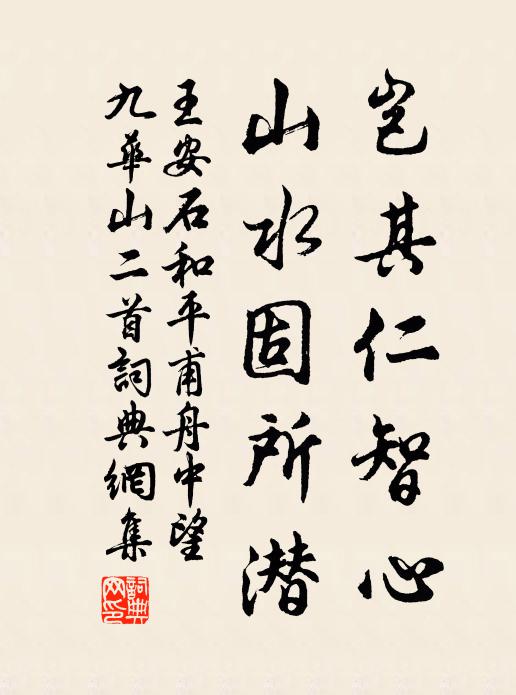 岂其仁智心
山水固所潜
王安石和平甫舟中望
九華山二首詞典網集
詞典網印